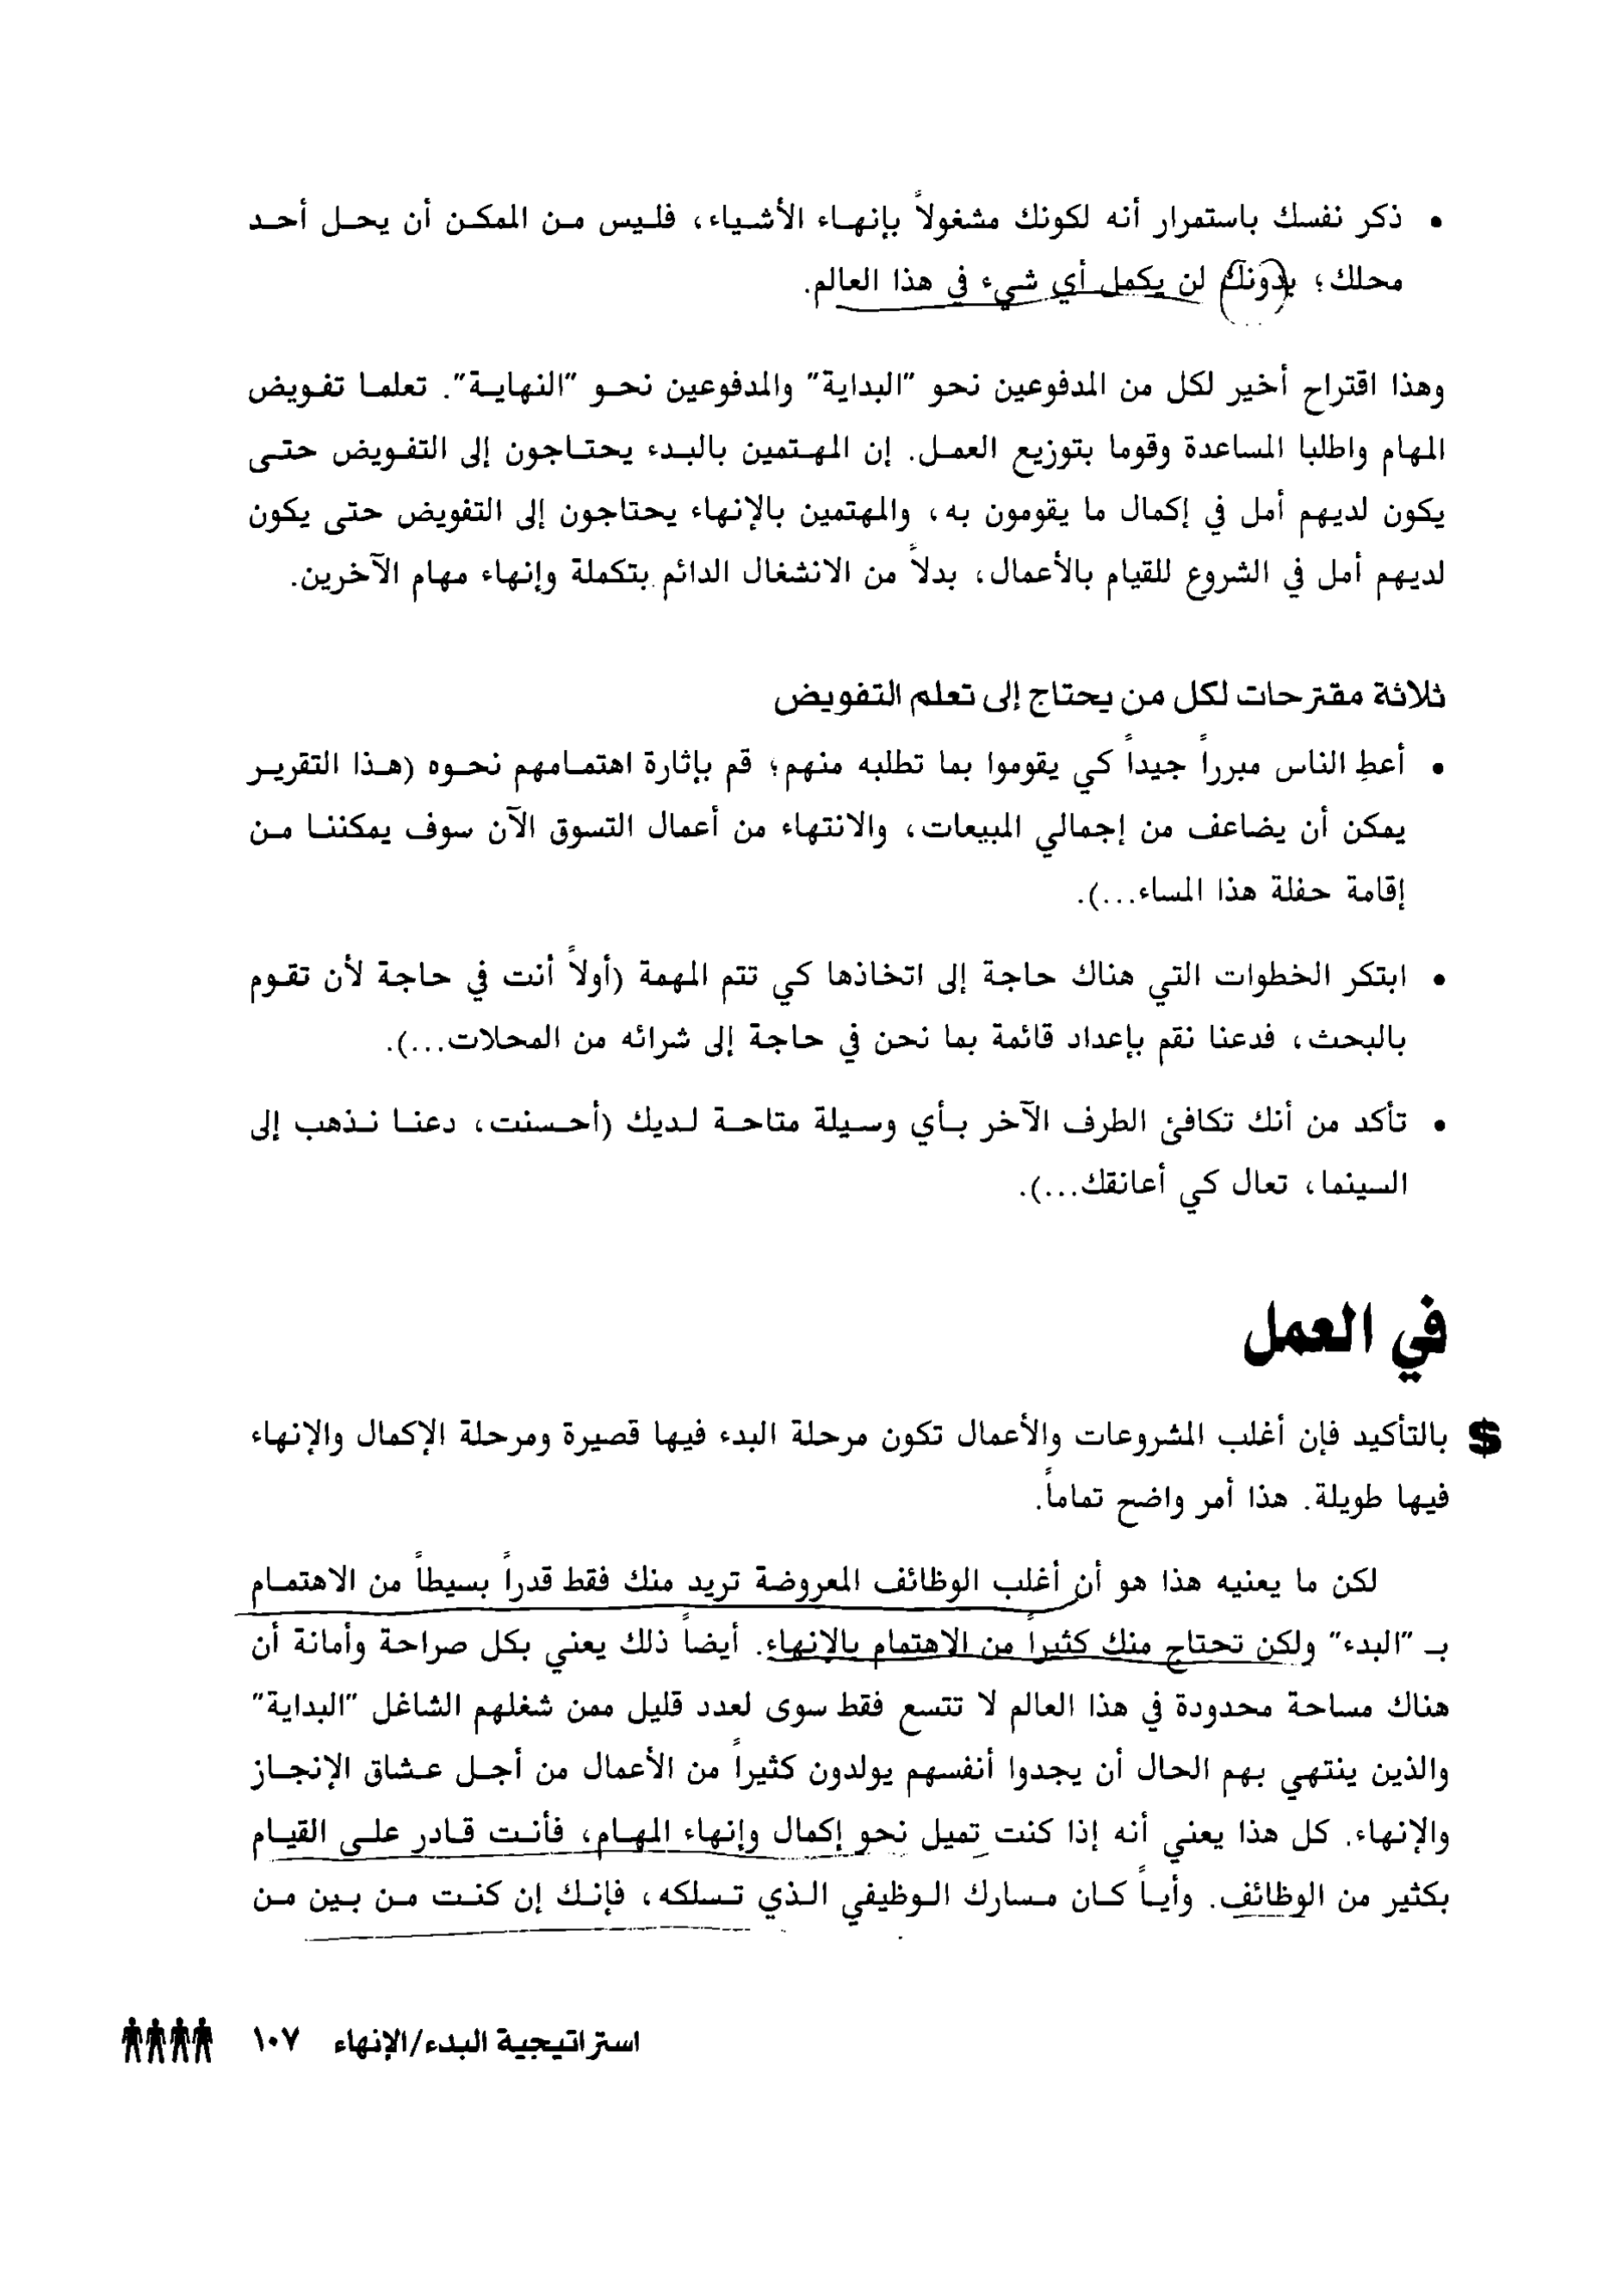 • ذكر نفسك باستمرار أنه لكونك مشغولاً بإنهاء الأشياء، فليس من الممكن أن يحل أحد
محلك؛ بدونك لن يكمل أي شيء في هذا العالم.
وهذا اقتراح أخير لكل من المدفوعين نحو "البداية" والمدفوعين نحو "النهاية". تعلما تفويض
المهام واطلبا المساعدة وقوما بتوزيع العمل. إن المهتمين بالبدء يحتاجون إلى التفويض حتى
يكون لديهم أمل في إكمال ما يقومون به، والمهتمين بالإنهاء يحتاجون إلى التفويض حتى يكون
لديهم أمل في الشروع للقيام بالأعمال، بدلاً من الانشغال الدائم بتكملة وإنهاء مهام الآخرين.
ثلاثة مقترحات لكل من يحتاج إلى تعلم التفويض
• أعطِ الناس مبرراً جيداً كي يقوموا بما تطلبه منهم؛ قم بإثارة اهتمامهم نحوه (هذا التقرير
يمكن أن يضاعف من إجمالي المبيعات، والانتهاء من أعمال التسوق الآن سوف يمكننا من
إقامة حفلة هذا المساء...).
• ابتكر الخطوات التي هناك حاجة إلى اتخاذها كي تتم المهمة (أولاً أنت في حاجة لأن تقوم
بالبحث، فدعنا نقم بإعداد قائمة بما نحن في حاجة إلى شرائه من المحلات...).
• تأكد من أنك تكافئ الطرف الآخر بأي وسيلة متاحة لديك (أحسنت، دعنا نذهب إلى
السينما، تعال كي أعانقك...).
في العمل
$ بالتأكيد فإن أغلب المشروعات والأعمال تكون مرحلة البدء فيها قصيرة ومرحلة الإكمال والإنهاء
فيها طويلة. هذا أمر واضح تماماً.
لكن ما يعنيه هذا هو أن أغلب الوظائف المعروضة تريد منك فقط قدراً بسيطاً من الاهتمام
بـ "البدء" ولكن تحتاج منك كثيراً من الاهتمام بالإنهاء. أيضاً ذلك يعني بكل صراحة وأمانة أن
هناك مساحة محدودة في هذا العالم لا تتسع فقط سوى لعدد قليل ممن شغلهم الشاغل "البداية"
والذين ينتهي بهم الحال أن يجدوا أنفسهم يولدون كثيراً من الأعمال من أجل عشاق الإنجاز
والإنهاء. كل هذا يعني أنه إذا كنت تميل نحو إكمال وإنهاء المهام، فأنت قادر على القيام
بكثير من الوظائف. وأياً كان مسارك الوظيفي الذي تسلكه، فإنك إن كنت من بين من
استراتيجية البدء/الإنهاء ١٠٧